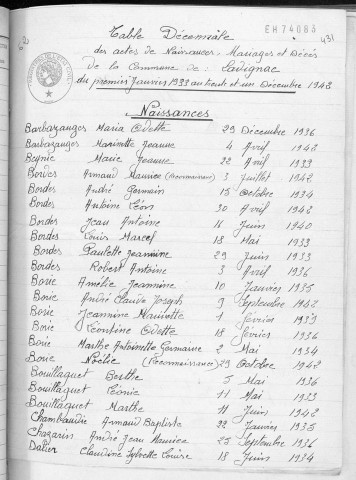 EH74083
431
Table Décennale
des actes de Naissances - Mariages et Décès
de la Commune de : Ladignac
du premier Janvier 1933 au trente et un Décembre 1942
Naissances
Barbazanges Maria Odette 29 Décembre 1936
Barbazanges Marinette Jeanne 4 Avril 1942
Beynie Marie Jeanne 22 Avril 1933
Bordes Armand Maurice (Reconnaissance) 3 Juillet 1942
Bordes André Germain 15 Octobre 1934
Bordes Antoine Léon 30 Avril 1942
Bordes Jean Antoine 16 Juin 1940
Bordes Louis Marcel 18 Mai 1933
Bordes Paulette Jeannine 29 Juin 1933
Bordes Robert Antoine 3 Avril 1936
Borie Amélie Jeannine 10 Janvier 1935
Borie André Claude Joseph 9 Septembre 1942
Borie Jeannine Marinette 1 février 1933
Borie Léontine Odette 18 février 1936
Borie Marthe Antoinette Germaine 2 Mai 1934
Borie Noëlie (Reconnaissance) 29 Octobre 1942
Bouillaguet Berthe 5 Mai 1936
Bouillaguet Léonie 11 Mai 1933
Bouillaguet Marthe 11 Juin 1942
Chambaudie Armand Baptiste 22 Janvier 1935
Chazarin André Jean Maurice 25 Septembre 1936
Dalier Claudine Sylvette Louise 18 Juin 1934